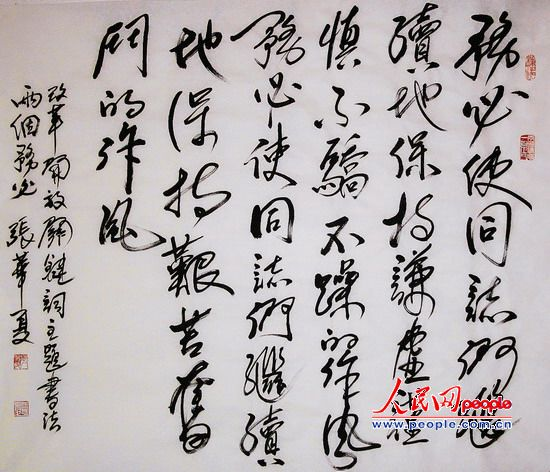 務必使同誌們繼
續地保持謙虛謹
慎不驕不躁的作風
務必使同誌們繼續
地保持艱苦奮
鬥的作風
改革開放關鍵詞主題書法
兩個務必 張華夏
人民网 people
www.people.com.cn